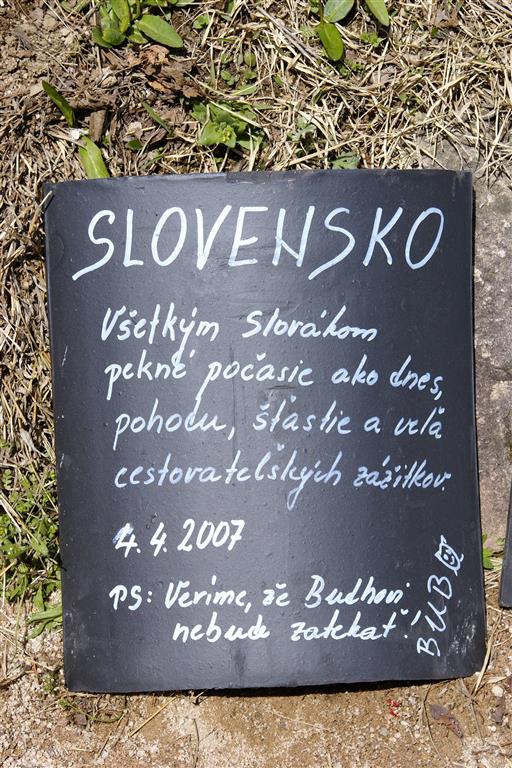 SLOVENSKO
Všetkým Slovákom
pekné počasie ako dnes,
pohodu, šťastie a veľa
cestovateľských zážitkov.
4.4.2007
PS: Veríme, že Budhovi
nebude zatekať!
BUBO